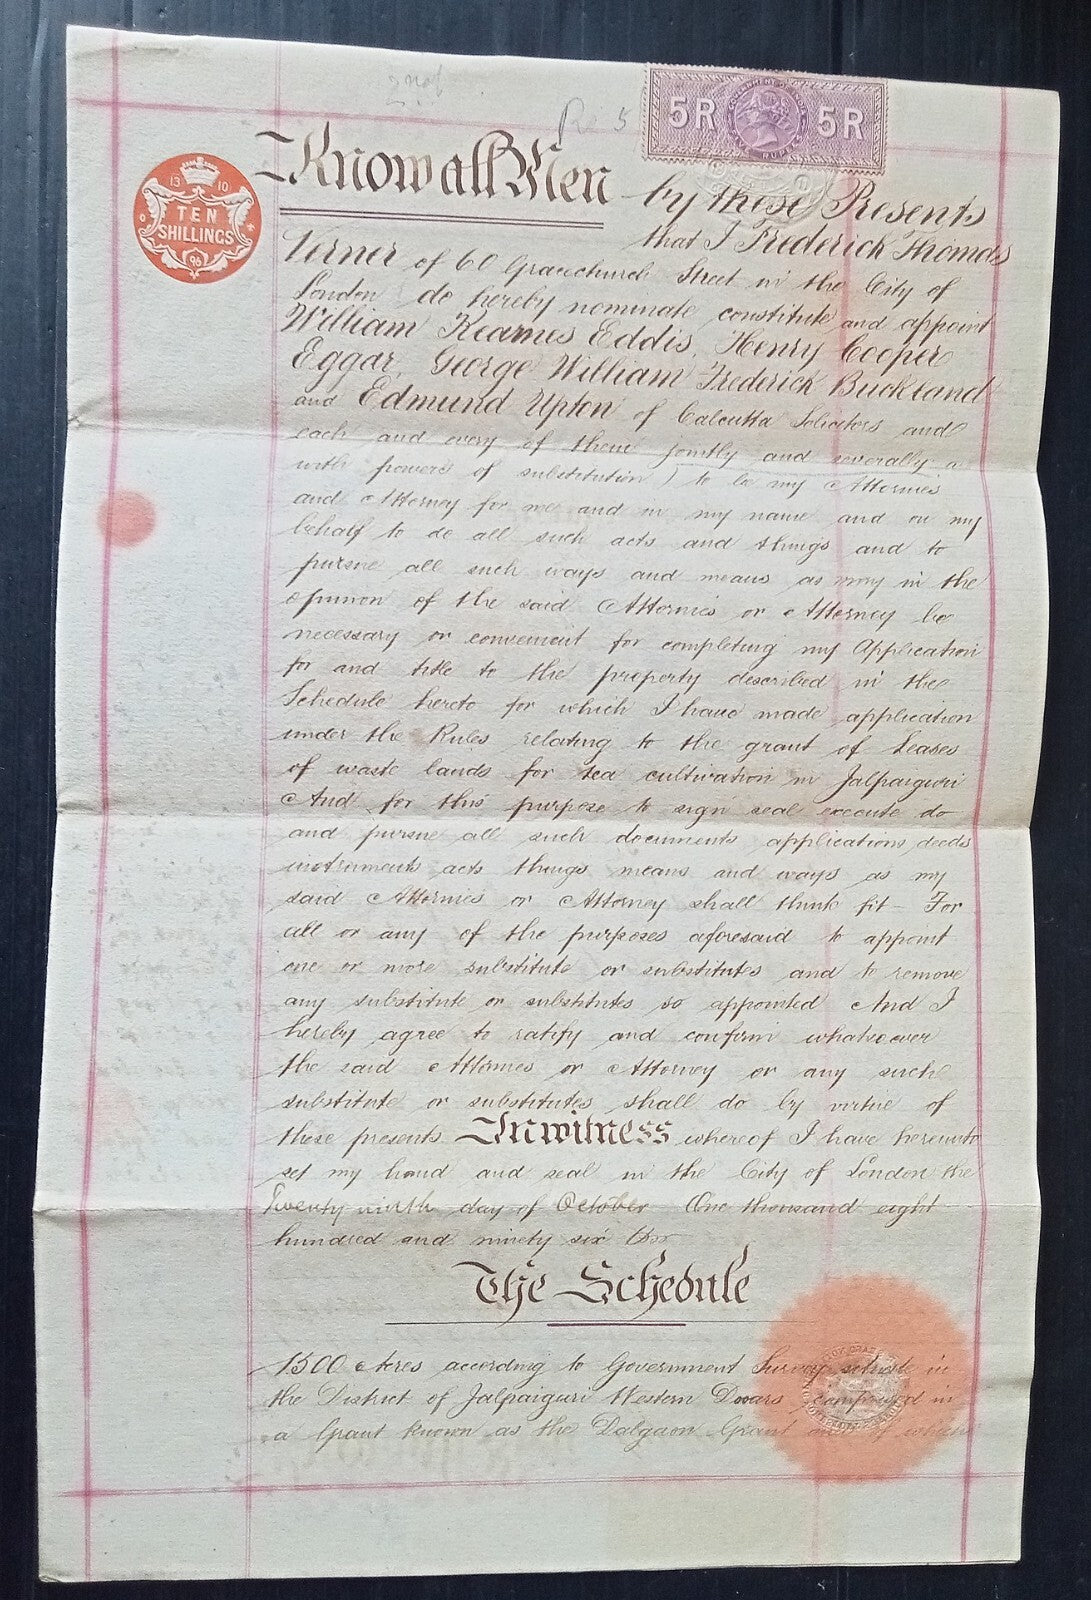 Rs 5
5R 5R
13 10
TEN
SHILLINGS
96
Know all Men by these Presents
that I Frederick Thomas
Verner of 60 Gracechurch Street in the City of
London do hereby nominate constitute and appoint
William Kearnes Eddis, Henry Cooper
Eggar, George William Frederick Buckland
and Edmund Upton of Calcutta Solicitors and
each and every of them jointly and severally
with powers of substitution) to be my Attornies
and Attorney for me and in my name and on my
behalf to do all such acts and things and to
pursue all such ways and means as may in the
opinion of the said Attornies or Attorney be
necessary or convenient for completing my Application
for and title to the property described in the
Schedule hereto for which I have made application
under the Rules relating to the grant of Leases
of waste lands for tea cultivation in Jalpaiguri
And for this purpose to sign seal execute do
and pursue all such documents applications deeds
instruments acts things means and ways as my
said Attornies or Attorney shall think fit - For
all or any of the purposes aforesaid to appoint
one or more substitute or substitutes and to remove
any substitute or substitutes so appointed And I
hereby agree to ratify and confirm whatsoever
the said Attornies or Attorney or any such
substitute or substitutes shall do by virtue of
these presents In witness whereof I have hereunto
set my hand and seal in the City of London the
Twenty ninth day of October One thousand eight
hundred and ninety six
The Schedule
1500 Acres according to Government Survey situate in
the District of Jalpaiguri Western Dooars comprised in
a Grant known as the Dalgaon Grant